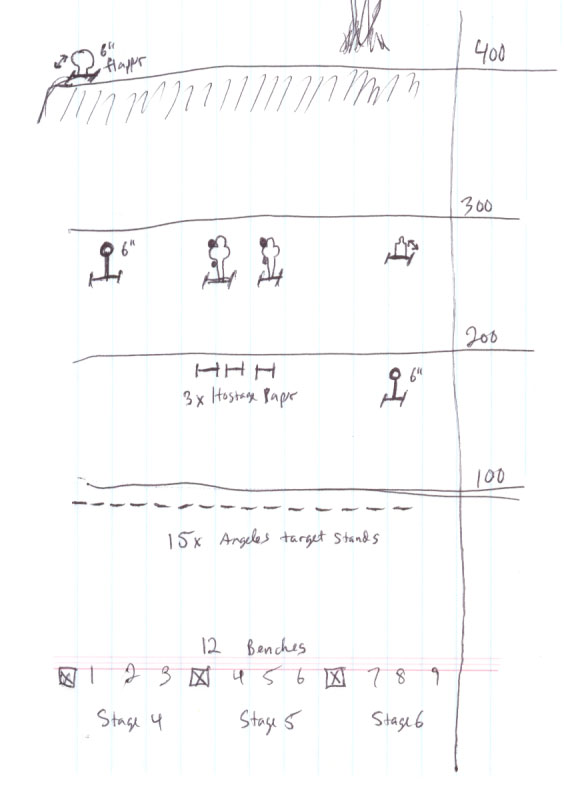 6"
flapper
400
300
6"
200
3x Hostage Paper
6"
100
15x Angeles target stands
12 Benches
1 2 3 4 5 6 7 8 9
Stage 4 Stage 5 Stage 6